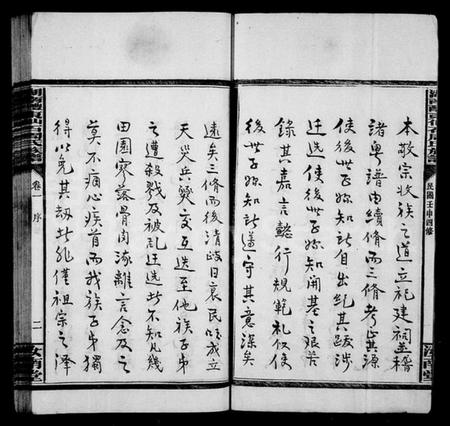 本敬宗收族之道立祀建祠並稽
諸粤譜由續脩而三脩考其源
使後世子孫知所自出紀其跋涉
迁徙使後世子孫知開基之艱苦
錄其嘉言懿行規範礼仪使
後世子孫知所遵守其意深矣
遠矣三脩而後清政日衰民國成立
天災兵燹交互迭至他族子弟
之遭殺戮及被乱迁逃者不知凡幾
田園寥落骨肉流離言念及之
莫不痛心疾首而我族子弟獨
得以免其劫者非僅祖宗之澤
民國壬申四修
卷一
序
二
汝南堂